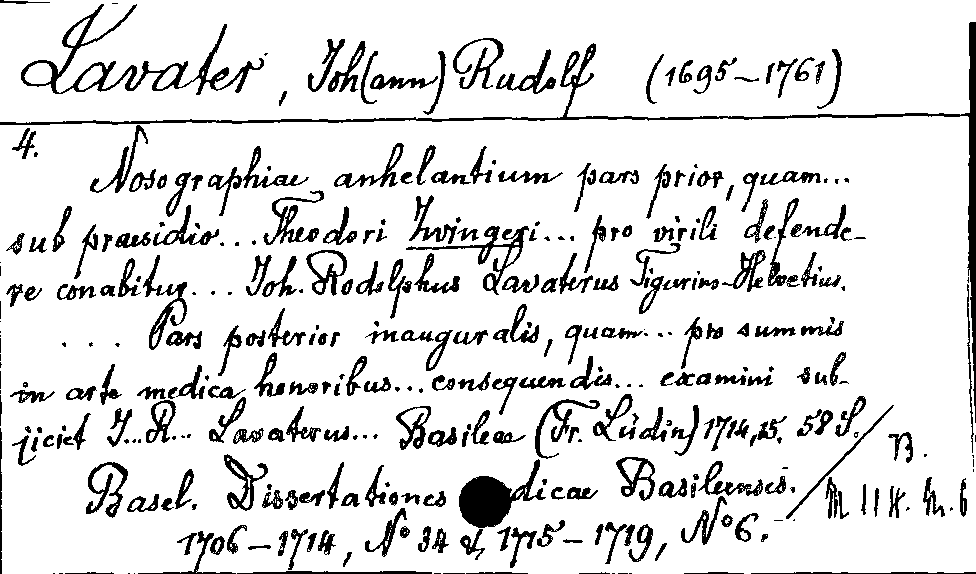 Lavater, Joh(ann) Rudolf (1695-1761)
4.
Nosographiae anhelantium pars prior, quam...
sub praesidio... Theodori Zwingeri... pro virili defende-
re conabitur... Joh. Rodolphus Lavaterus Tigurino-Helvetius.
.... Pars posterior inauguralis, quam... pro summis
in arte medica honoribus... consequendis... examini sub-
jiciet J... R... Lavaterus... Basileae (Fr. Lüdin) 1714,15. 58 S.
B.
Basel. Dissertationes dicae Basileenses.
1706-1714, No 34 & 1715-1719, No 6.